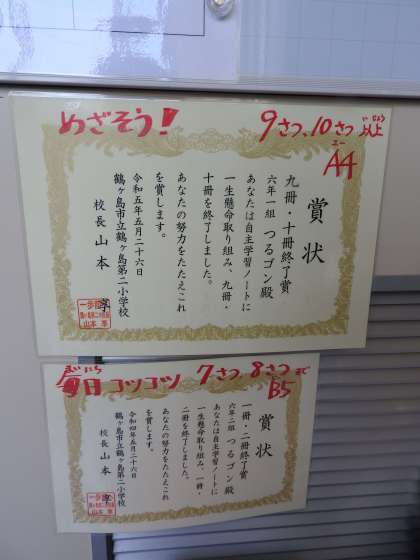 めざそう! 9さつ、10さつ以上
じょう
A4
賞状
九冊・十冊終了賞
六年一組 つるゴン殿
あなたは自主学習ノートに
一生懸命取り組み、九冊・
十冊を終了しました。
あなたの努力をたたえこれ
を賞します。
令和五年五月二十六日
鶴ヶ島市立鶴ヶ島第二小学校
校長 山本
毎日 コツコツ 7さつ、8さつまで
まいにち
B5
賞状
一冊・二冊終了賞
六年二組 つるゴン殿
あなたは自主学習ノートに
一生懸命取り組み、一冊・
二冊を終了しました。
あなたの努力をたたえこれ
を賞します。
令和四年五月二十六日
鶴ヶ島市立鶴ヶ島第二小学校
校長 山本